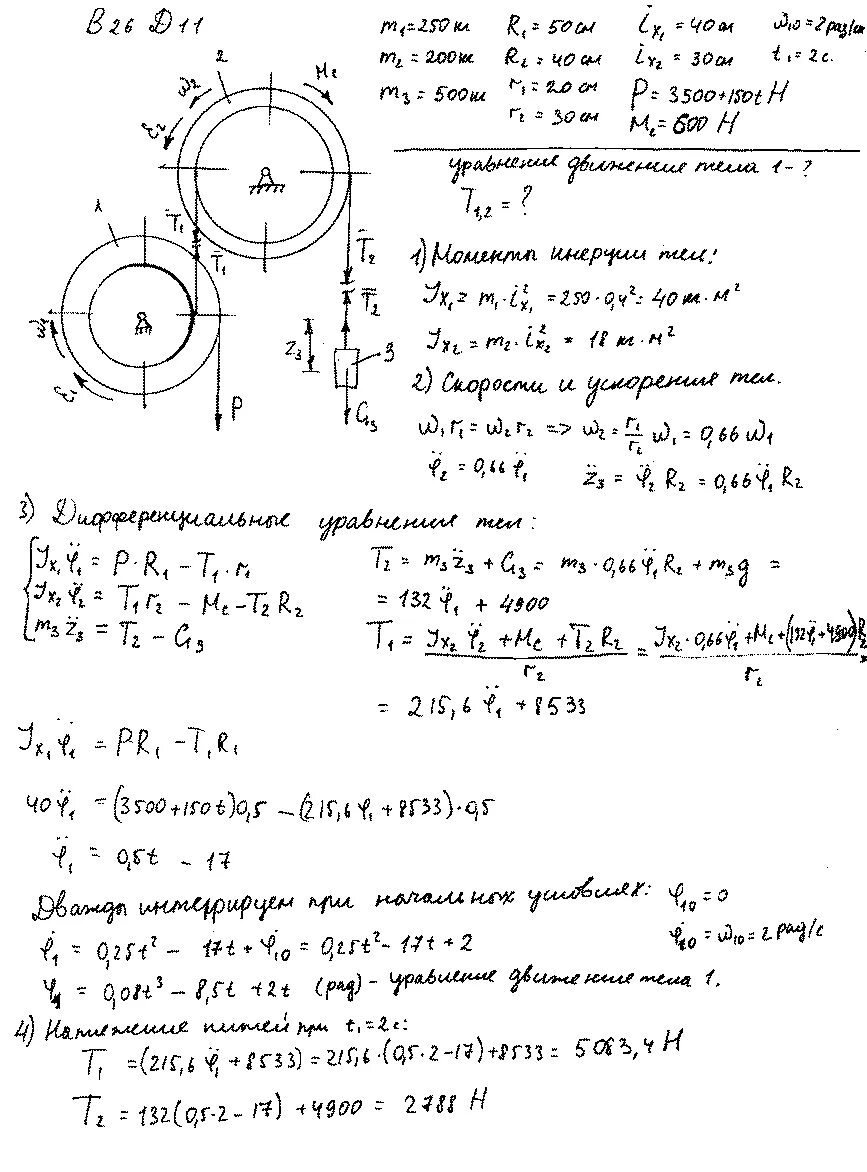 В 26 Д 11
m₁ = 250 кг R₁ = 50 см i_x₁ = 40 см ω₁₀ = 2 рад/с
m₂ = 200 кг R₂ = 40 см i_x₂ = 30 см t₁ = 2 с.
m₃ = 500 кг r₁ = 20 см P = 3500 + 150t Н
r₂ = 30 см M_c = 600 Н
уравнение движения тела 1 - ?
T₁,₂ = ?
2
ω₂
M_c
ε₂
1
T̄₁
T̄₁
T̄₂
T̄₂
z₃
3
G₃
P
ω₁
ε₁
1) Моменты инерции тел:
J_x₁ = m₁ · i²_x₁ = 250 · 0,4² = 40 кг · м²
J_x₂ = m₂ · i²_x₂ = 18 кг · м²
2) Скорости и ускорения тел.
ω₁r₁ = ω₂r₂ => ω₂ = r₁/r₂ ω₁ = 0,66 ω₁
φ̈₂ = 0,66 φ̈₁ z̈₃ = φ̈₂ R₂ = 0,66 φ̈₁ R₂
3) Дифференциальные уравнения тел:
J_x₁ φ̈₁ = P · R₁ - T₁ · r₁
J_x₂ φ̈₂ = T₁ r₂ - M_c - T₂ R₂
m₃ z̈₃ = T₂ - G₃
T₂ = m₃ z̈₃ + G₃ = m₃ · 0,66 φ̈₁ R₂ + m₃g =
= 132 φ̈₁ + 4900
T₁ = (J_x₂ φ̈₂ + M_c + T₂ R₂)/r₂ = (J_x₂ · 0,66 φ̈₁ + M_c + (132 φ̈₁ + 4900) R₂)/r₂ =
= 215,6 φ̈₁ + 8533
J_x₁ φ̈₁ = PR₁ - T₁R₁
40 φ̈₁ = (3500 + 150t) 0,5 - (215,6 φ̈₁ + 8533) · 0,5
φ̈₁ = 0,5t - 17
Дважды интегрируем при начальных условиях: φ₁₀ = 0
φ̇₁₀ = ω₁₀ = 2 рад/с
φ̇₁ = 0,25t² - 17t + φ̇₁₀ = 0,25t² - 17t + 2
φ₁ = 0,08t³ - 8,5t + 2t (рад) - уравнение движения тела 1.
4) Натяжение нитей при t₁ = 2 с:
T₁ = (215,6 φ̈₁ + 8533) = 215,6 · (0,5 · 2 - 17) + 8533 = 5083,4 Н
T₂ = 132 (0,5 · 2 - 17) + 4900 = 2788 Н